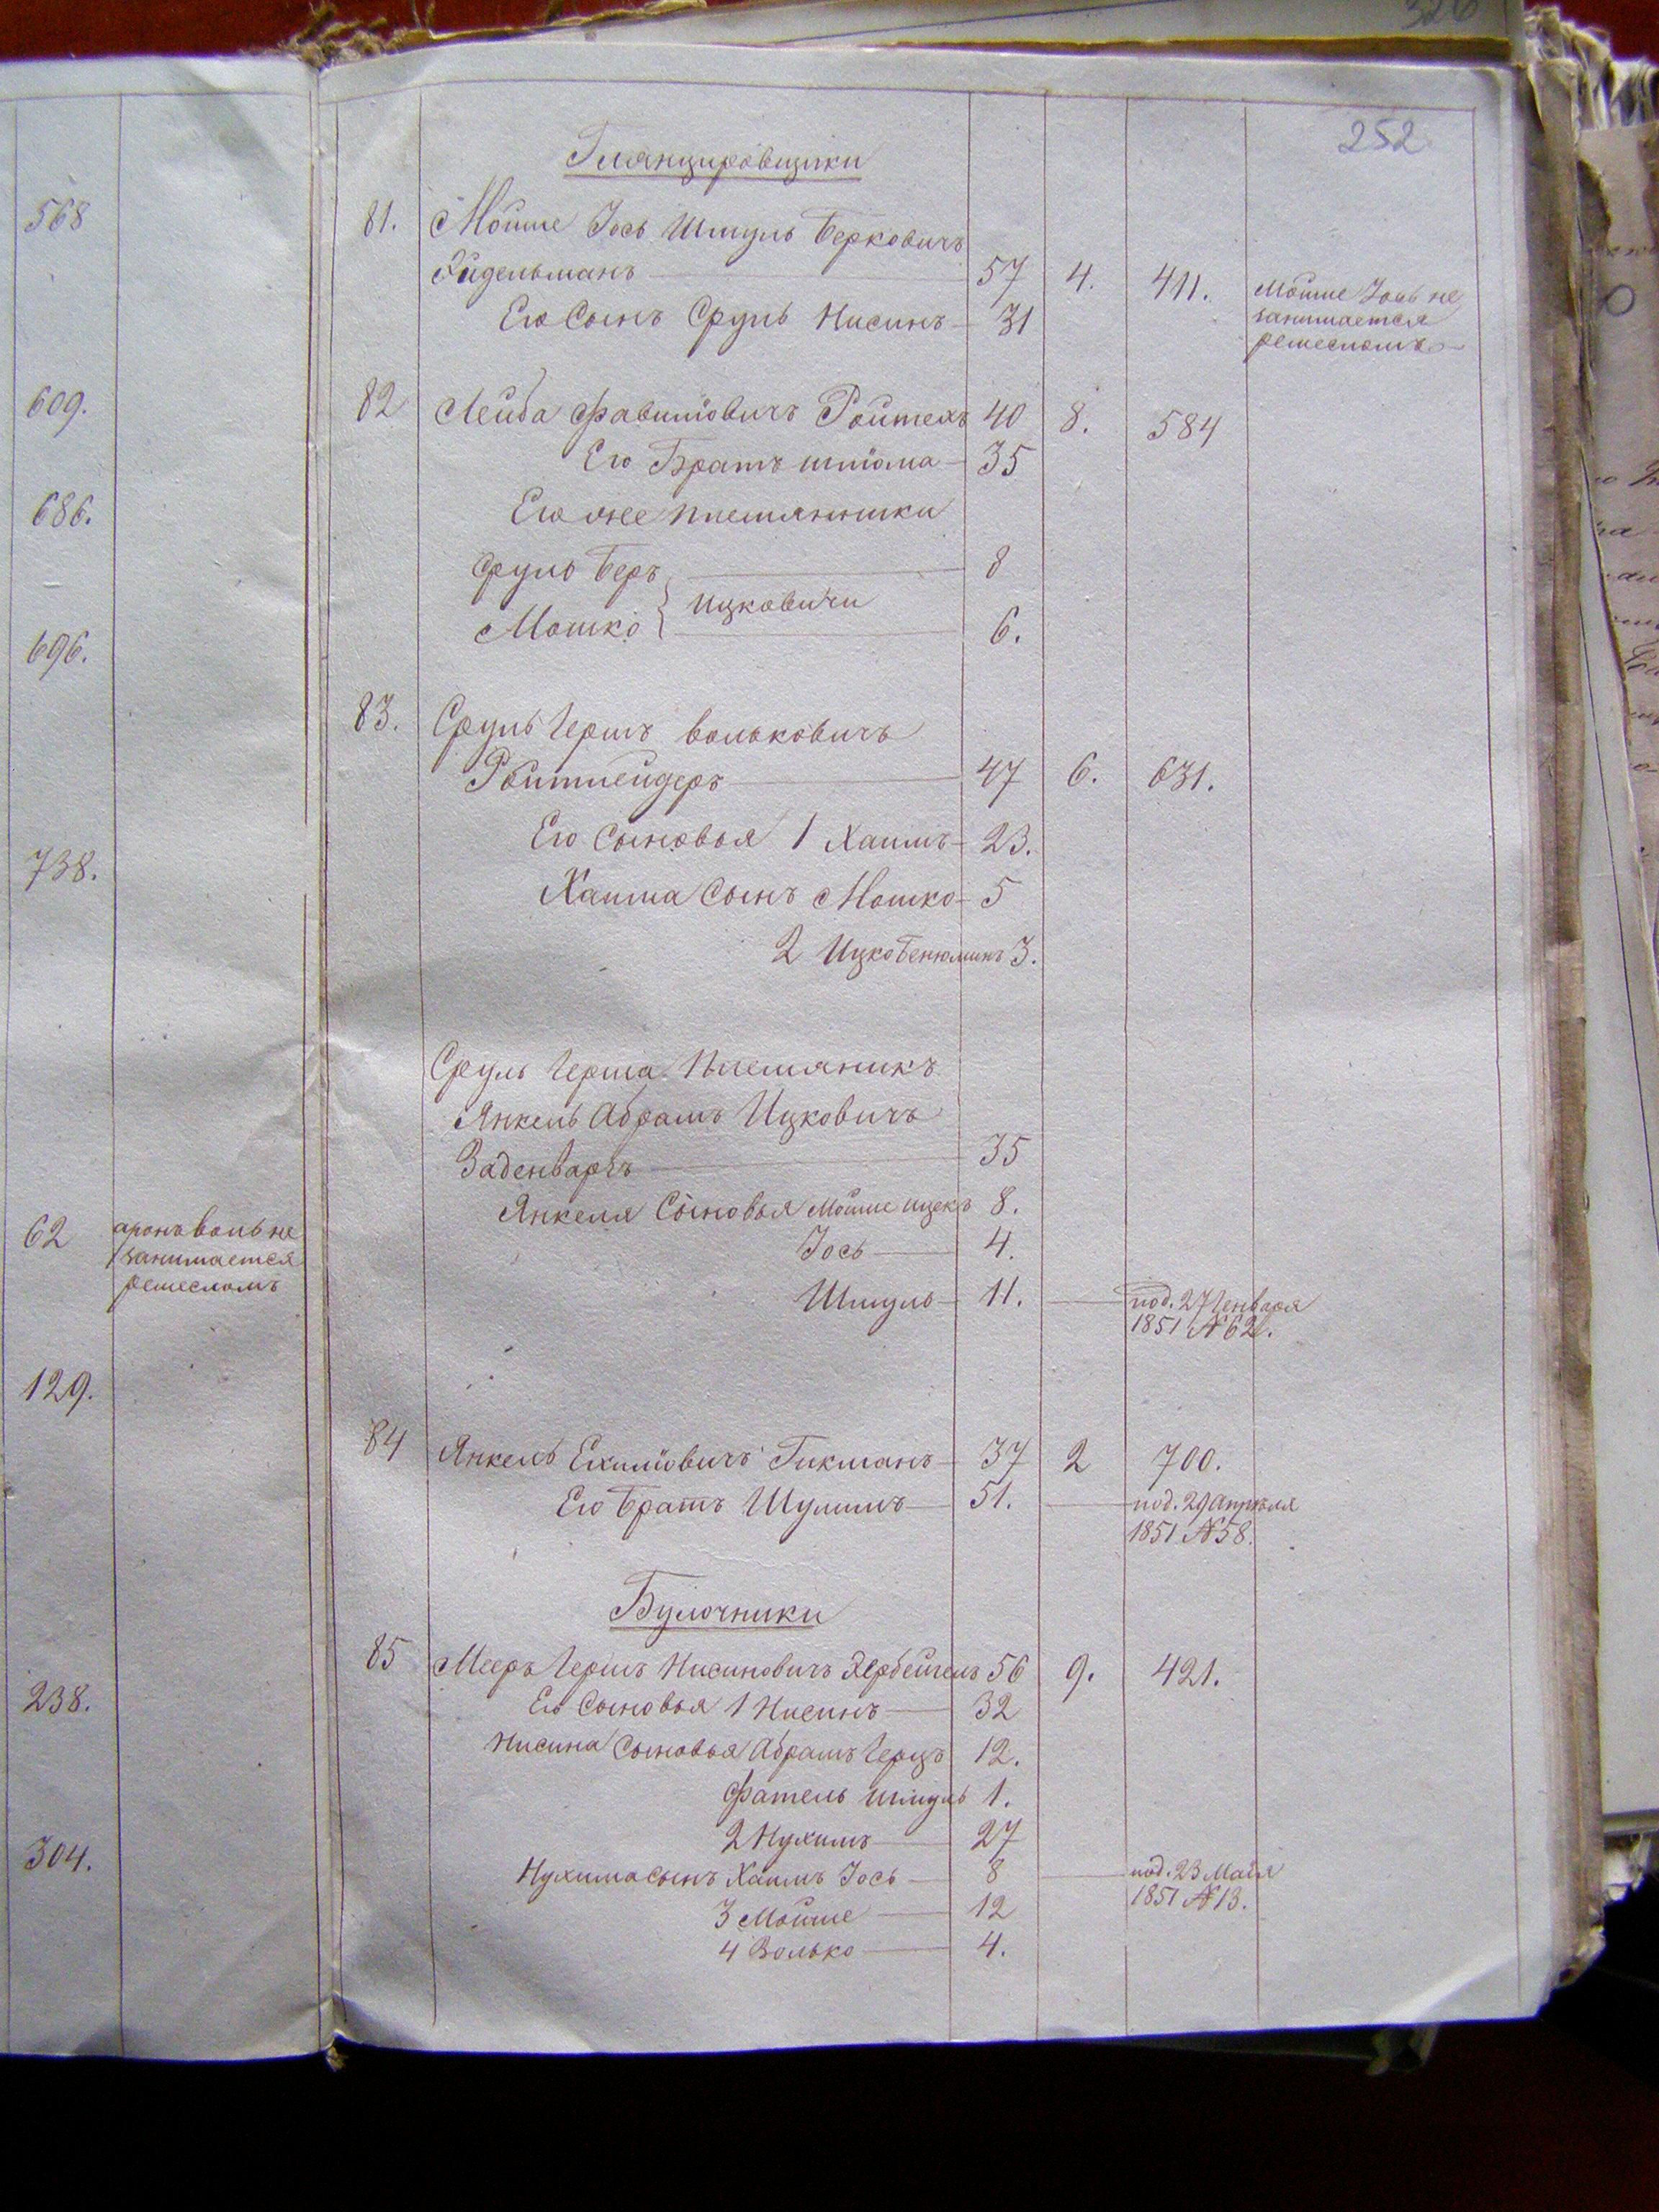 568
609.
686.
696.
738.
62 аронъ воль не
занимается
ремесломъ
129.
238.
304.
252.
Глянцировщики
81. Мошие Іось Шмуль Берковичъ
Эйдельманъ 57 4. 411. Мошие Іось не
занимается
ремесломъ
Его Сынъ Сруль Нисинъ 31
82 Лейба 40 8. 584
Его Братъ шлiома 35
Его же племянники
Сруль Беръ 8
Ицковичи
Мошко 6.
83. Сруль Гершъ вольковичъ
Ройтлейдеръ 47 6. 631.
Его Сыновья 1 Хаимъ 23.
Хаима Сынъ Мошко 5
2 Ицко Бенюминъ 3.
Сруль Герша Племяникъ
Янкель Абрамъ Ицковичъ
35
Янкеля Сыновья Мошие ицекъ 8.
Іось 4.
Шмуль 11. под. 27 Генваря
1851 № 62.
84 Янкель Гикманъ 37 2 700.
Его братъ Шулимъ 51. под. 29 Апреля
1851 № 58.
Булочники
85 Мееръ Гершъ Нисиновичъ 56 9. 421.
Его Сыновья 1 Нисинъ 32
Нисина Сыновья Абрамъ Герцъ 12.
Фатель шмуль 1.
2 Нухимъ 27
Нухима сынъ Хаимъ Іось 8 под. 23 Маія
1851 № 13.
3 Мошие 12
4 Волько 4.